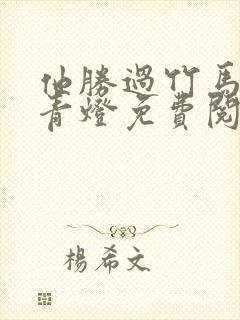 他勝過竹馬
青燈免費閱
楊希文